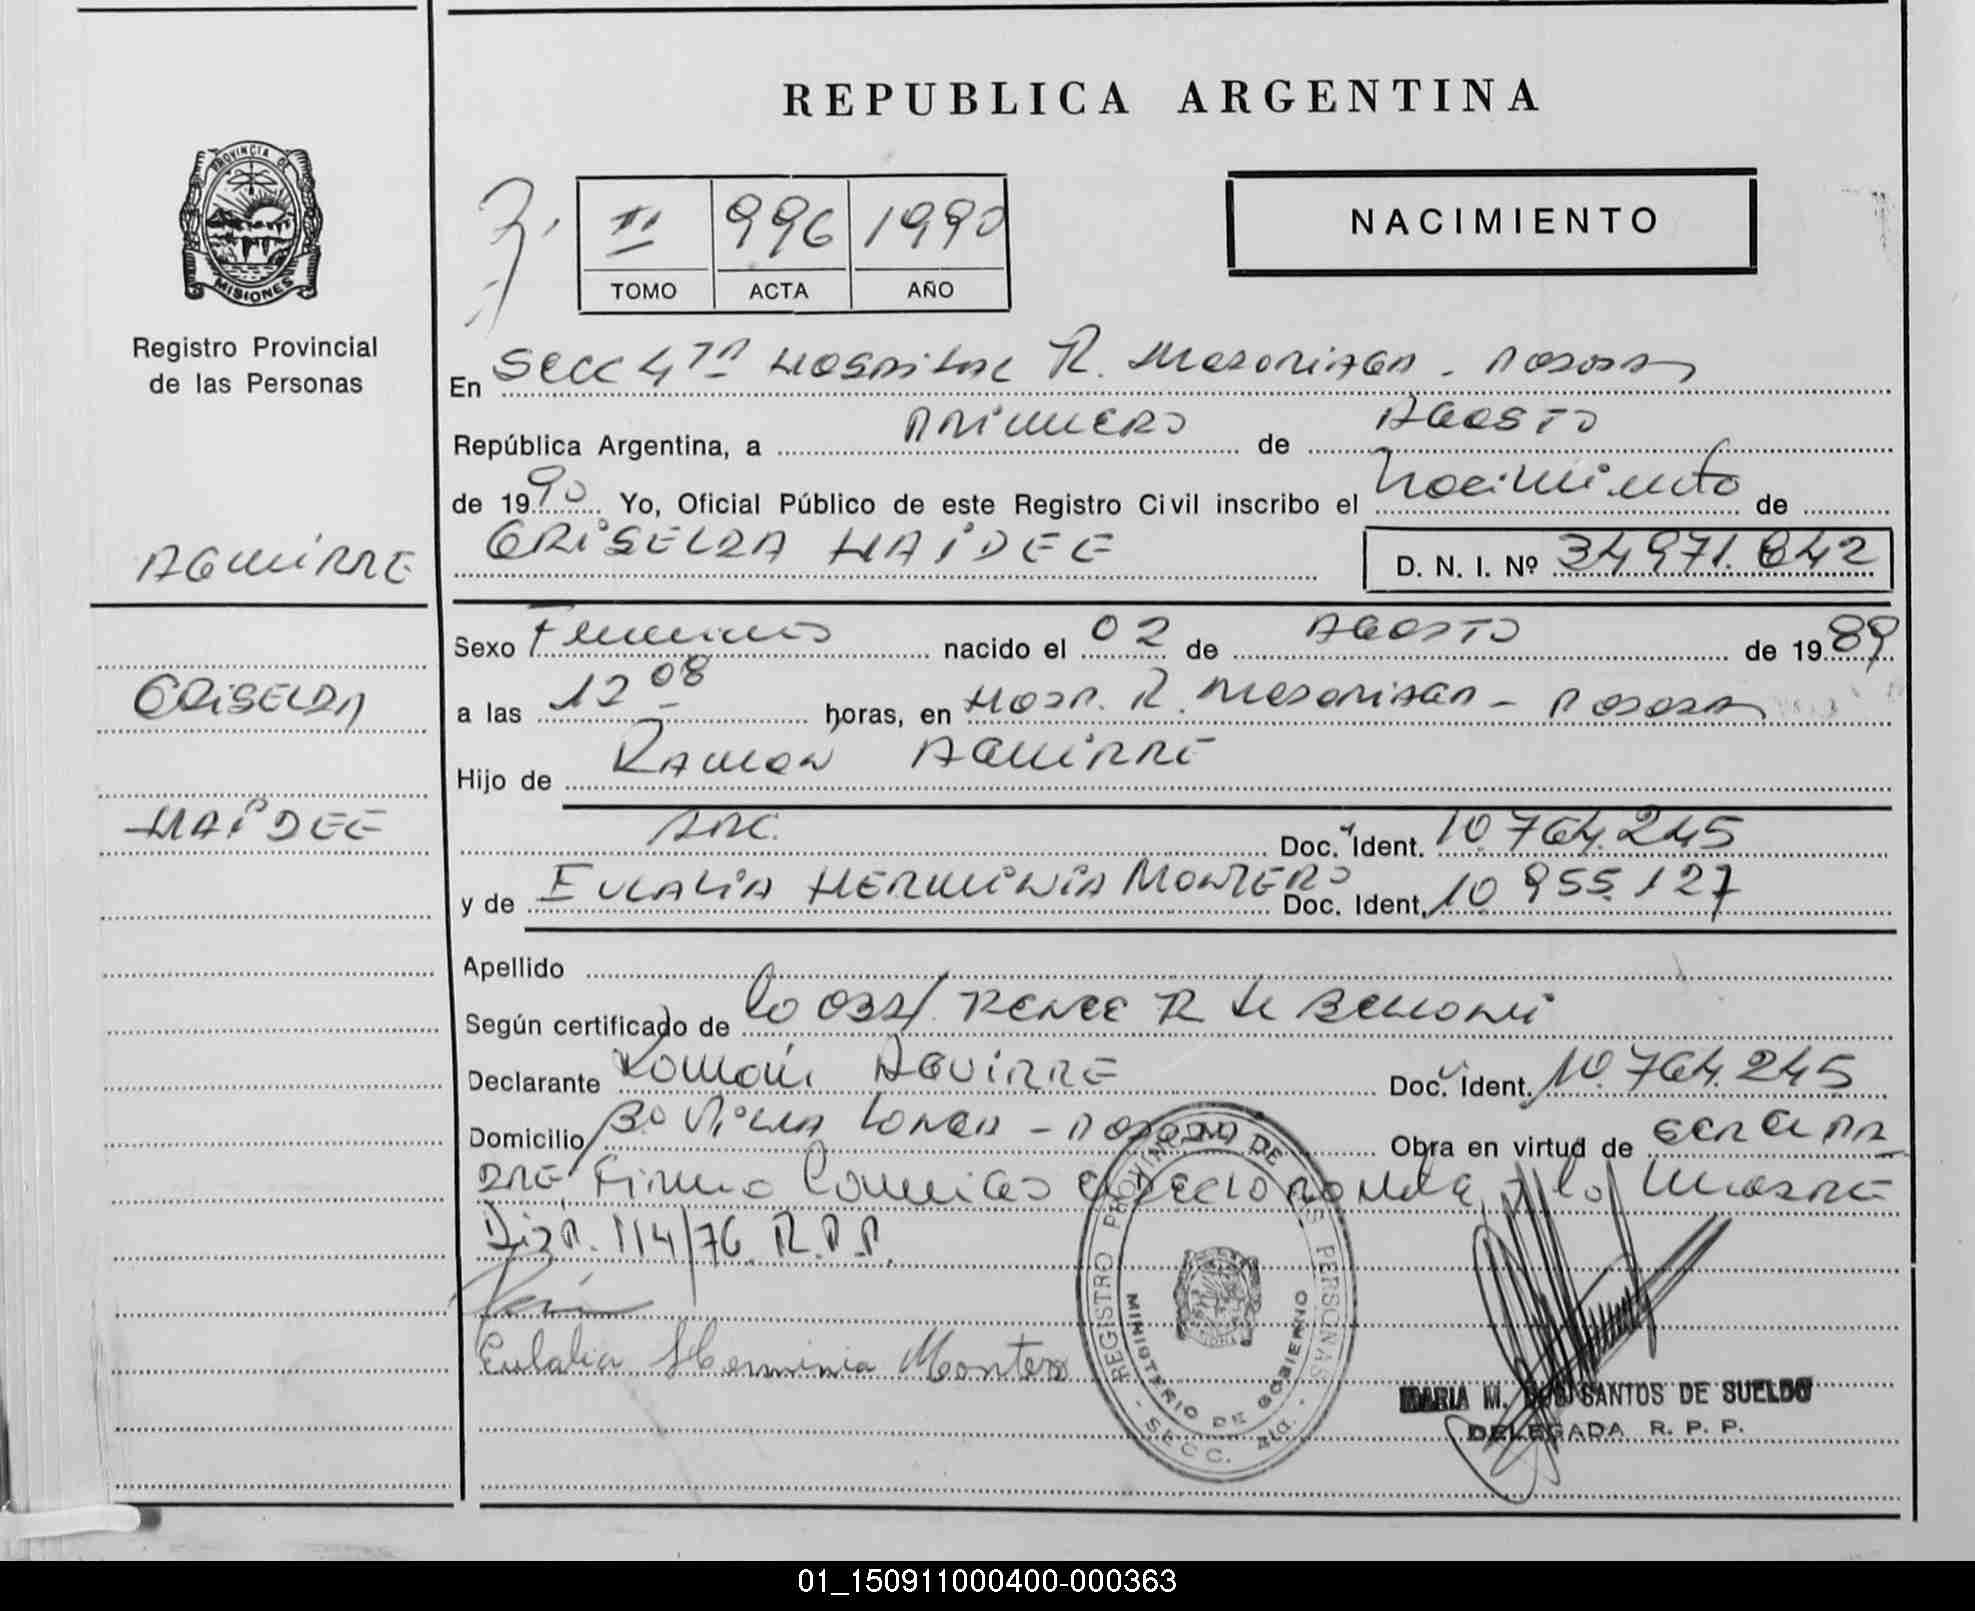 REPUBLICA ARGENTINA
PROVINCIA DE
MISIONES
Registro Provincial
de las Personas
II 996 1990
TOMO ACTA AÑO
NACIMIENTO
En Secc 4ta Hospital R. Madariaga - Posadas
República Argentina, a primero de Agosto
de 1990 Yo, Oficial Público de este Registro Civil inscribo el Nacimiento de
AGUIRRE
GRISELDA HAIDEE D. N. I. Nº 34971.842
Sexo Femenino nacido el 02 de AGOSTO de 1989
GRISELDA
a las 12 08 horas, en Hosp. R. Madariaga - Posadas
Hijo de RAMON AGUIRRE
HAIDEE
ARG. Doc. Ident. 10.764.245
y de EULALIA HERMINIA MONTERO Doc. Ident. 10.955.127
Apellido
Según certificado de la Obst/ RENEE R de
Declarante Ramón AGUIRRE Doc. Ident. 10.764.245
Domicilio Bº VILLA - Posadas Obra en virtud de ser el pa
dre, Firma la madre
Disp. 114/76 R.P.P.
Eulalia Herminia Montero
REGISTRO PROVINCIAL DE LAS PERSONAS
MINISTERIO DE GOBIERNO
- SECC. 4ta. -
MARIA M. DOS SANTOS DE SUELDO
DELEGADA R. P. P.
01_150911000400-000363